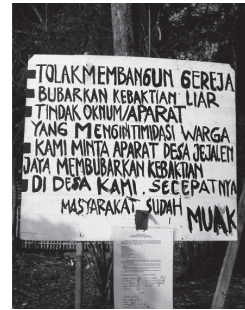 TOLAK MEMBANGUN GEREJA
BUBARKAN KEBAKTIAN LIAR
TINDAK OKNUM/APARAT
YANG MENGINTIMIDASI WARGA
KAMI MINTA APARAT DESA JEJALEN
JAYA MEMBUBARKAN KEBAKTIAN
DI DESA KAMI. SECEPATNYA
MASYARAKAT SUDAH MUAK